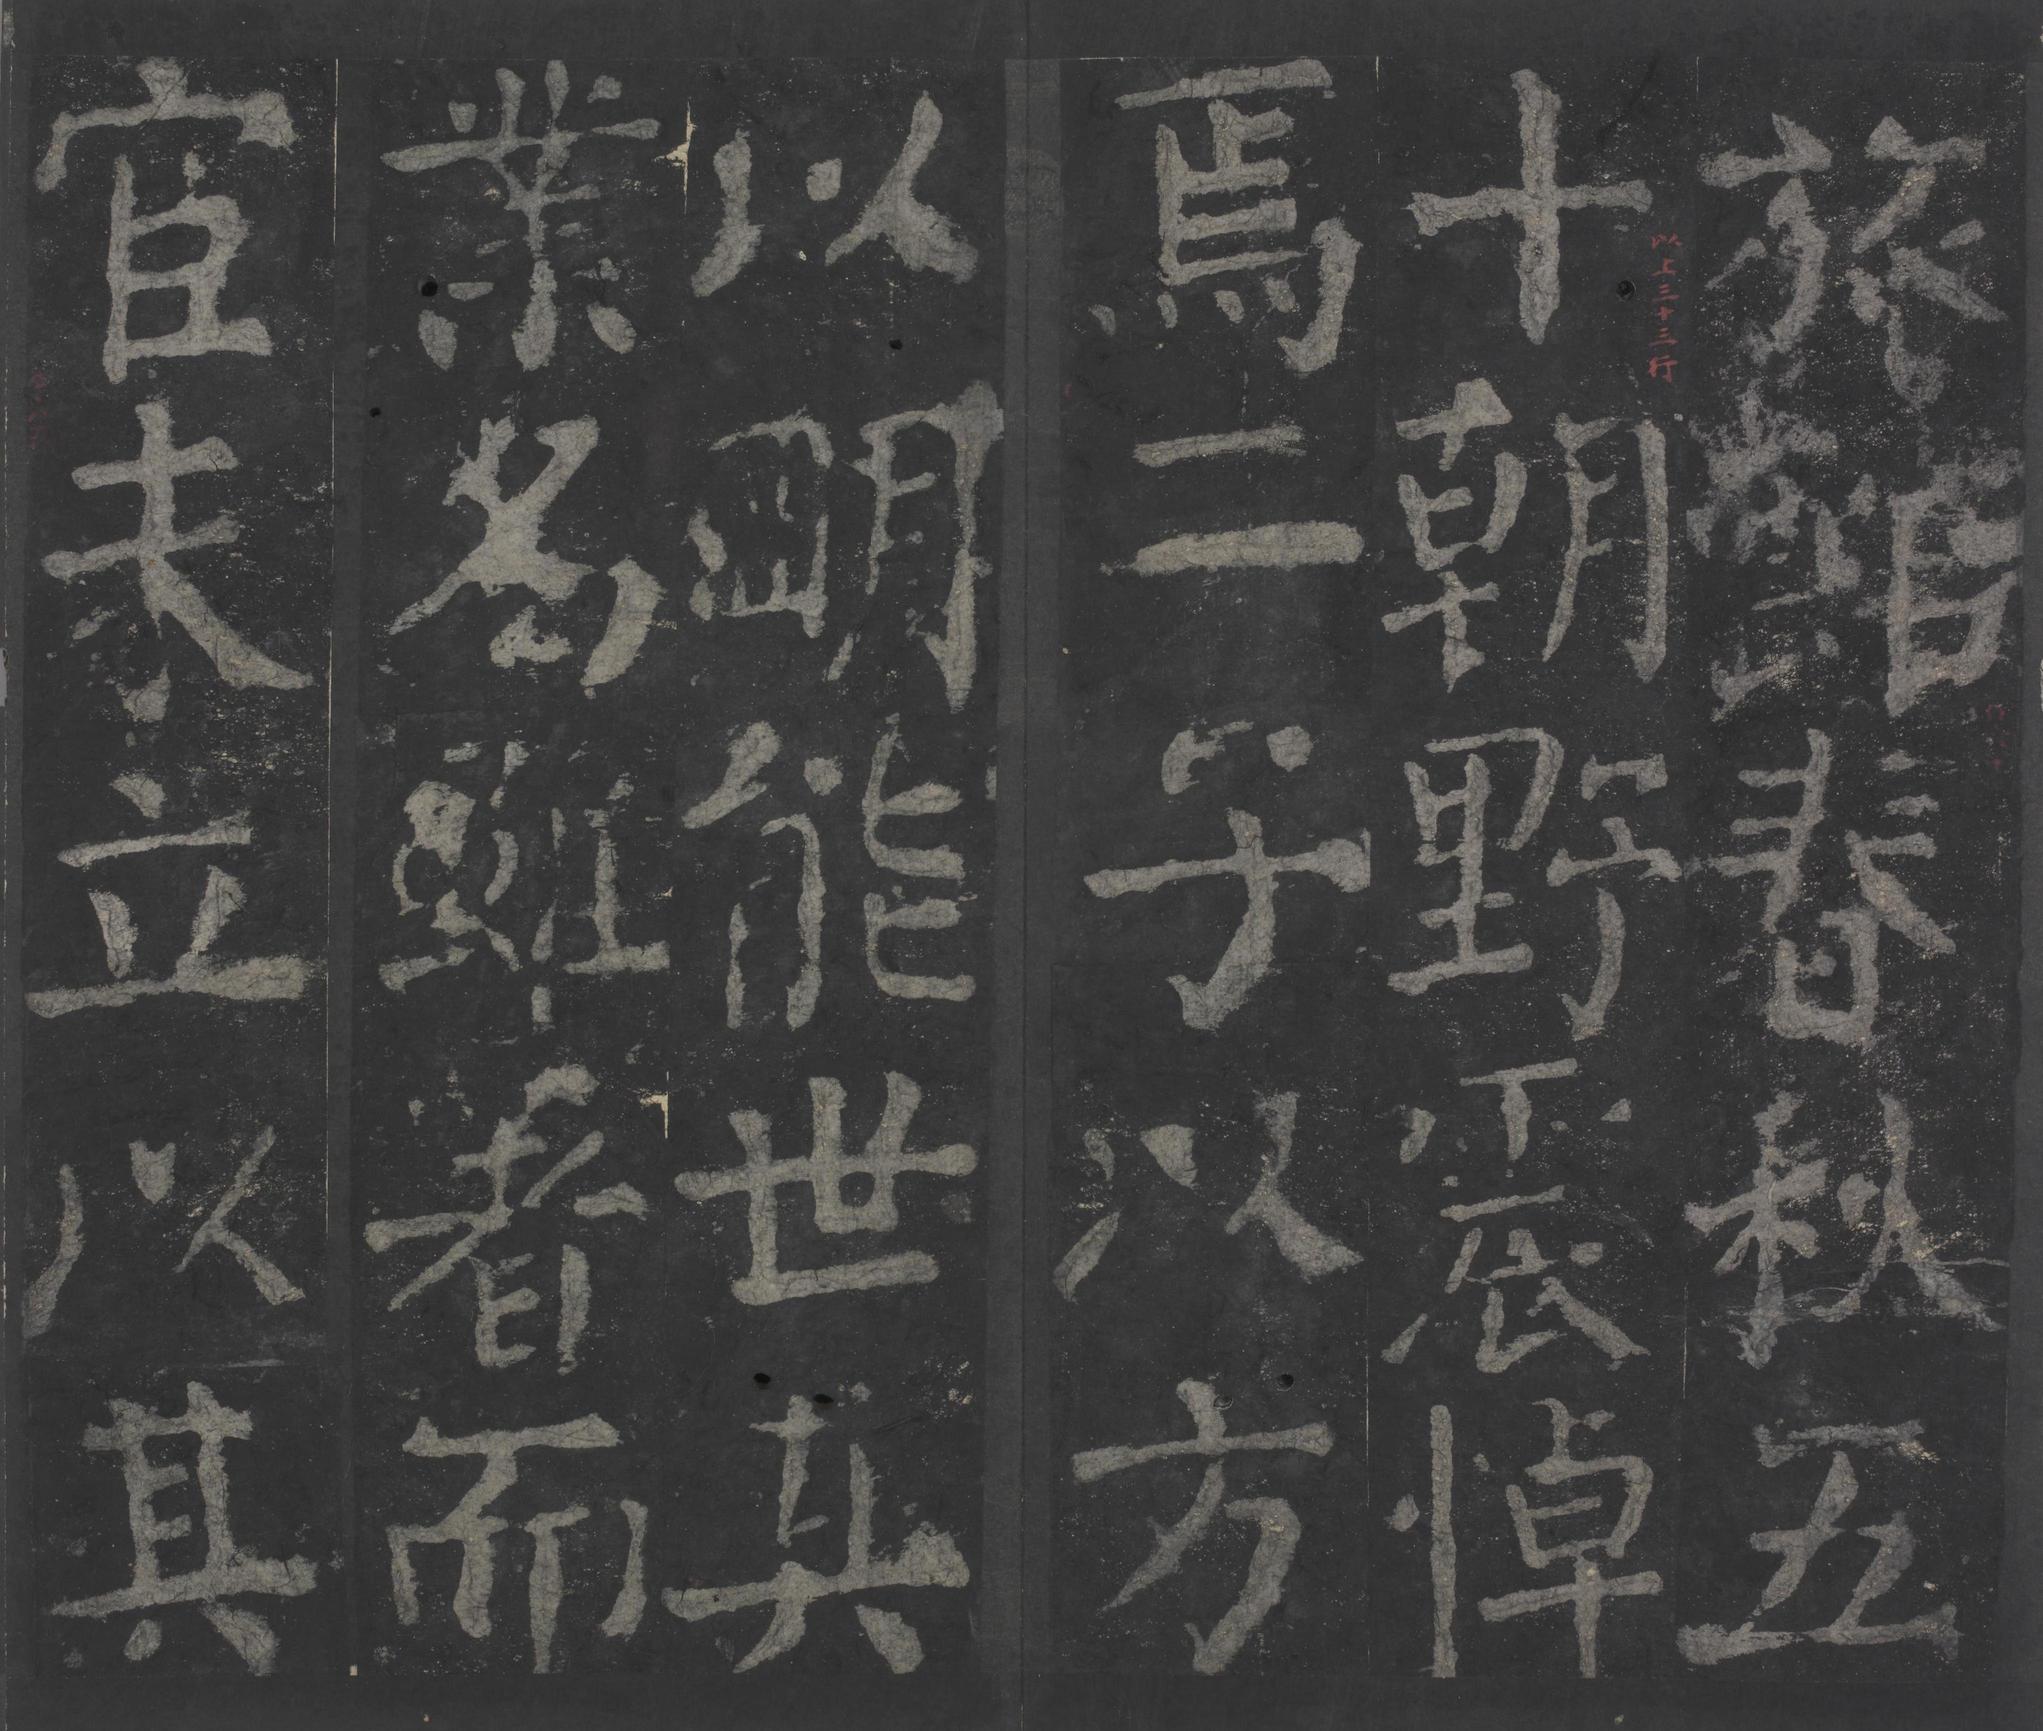 旅館春秋五
以上三十三行
十朝野震悼
焉二子以方
以明能世其
業名雖著而
官未立以其